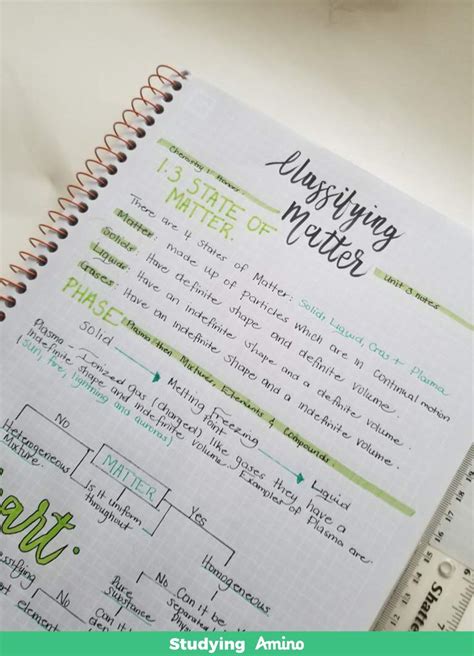 Classifying
Matter
Chemistry 1 Honors
Unit 3 notes
1.3 STATE OF
MATTER.
There are 4 states of Matter: Solid, Liquid, Gas + Plasma
Matter: made up of particles which are in continual motion
Solids: Have definite shape and definite volume.
Liquids: Have an indefinite shape and a definite volume.
Gases: Have an indefinite shape and a indefinite volume.
PHASE
Plasma then Mixtures, Elements & Compounds.
Solid
Melting Freezing
Point
Liquid
Plasma - Ionized gas (charged), like gases they have a
indefinite shape and indefinite volume. Examples of Plasma are:
sun, fire, lightning and auroras)
MATTER
No
Is it uniform
throughout
Yes
Heterogeneous
Mixture.
Homogeneous
art.
No
Pure
substance
Can it be
separated
Can it
element
Shatter
Studying Amino